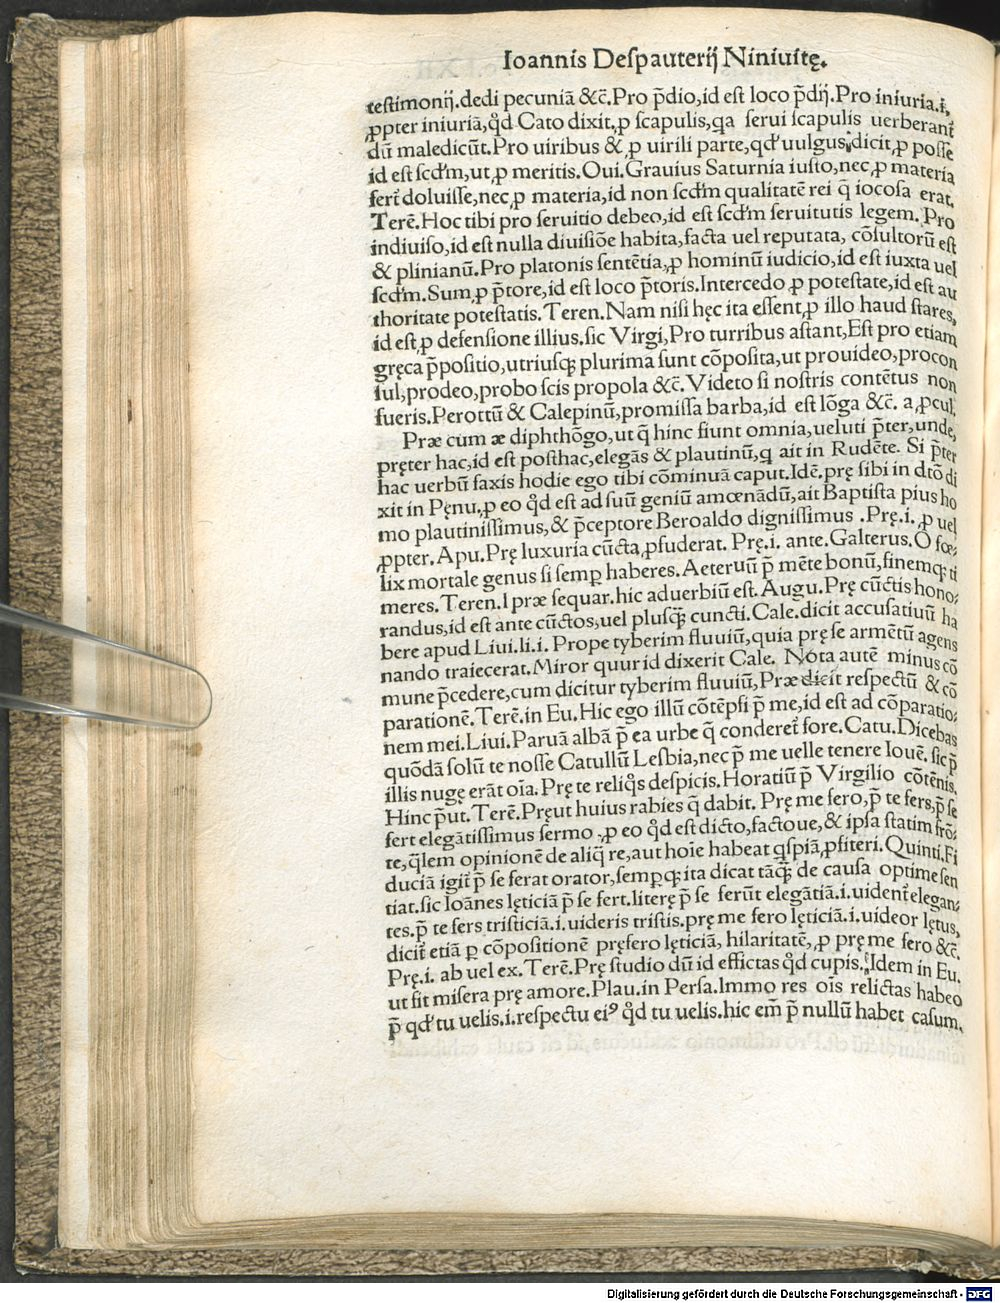 Ioannis Deſpauterij Niniuitę.
teſtimonij.dedi pecuniā &c̄.Pro p̄dio,id eſt loco p̄dij.Pro iniuria.i,
ꝓpter iniuriā,qd̕ Cato dixit,ꝓ ſcapulis,qa ſerui ſcapulis uerberant̄
dū maledicūt.Pro uiribus &,ꝓ uirili parte,qd̕ uulgus dicit,ꝓ poſſe
id eſt ſcd̕m,ut,ꝓ meritis.Oui.Grauius Saturnia iuſto,nec,ꝓ materia
fert̄ doluiſſe,nec,ꝓ materia,id non ſcd̕m qualitatē rei q̄ iocoſa erat.
Terē.Hoc tibi pro ſeruitio debeo,id eſt ſcd̕m ſeruitutis legem. Pro
indiuiſo,id eſt nulla diuiſiōe habita,facta uel reputata, cōſultorū eſt
& plinianū.Pro platonis ſentētia,ꝓ hominū iudicio,id eſt iuxta uel
ſcd̕m.Sum,ꝓ p̄tore,id eſt loco p̄toris.Intercedo,ꝓ poteſtate,id eſt au
thoritate poteſtatis. Teren.Nam niſi hęc ita eſſent,ꝓ illo haud ſtares,
id eſt,ꝓ defenſione illius.ſic Virgi,Pro turribus aſtant,Eſt pro etiam
gręca p̄poſitio,utriuſqꝫ plurima ſunt cōpoſita,ut prouideo,procon
ſul,prodeo,probo ſcis propola &c̄.Videto ſi noſtris contētus non
fueris.Perottū & Calepinū,promiſſa barba,id eſt lōga &c̄. a,ꝓcul,
Præ cum æ diphthōgo,ut q̄ hinc fiunt omnia,ueluti p̄ter,unde,
pręter hac,id eſt poſthac,elegās & plautinū,q ait in Rudēte. Si p̄ter
hac uerbū faxis hodie ego tibi cōminuā caput.Idē.prę ſibi in dtō di
xit in Pęnu.ꝓ eo qd̕ eſt ad ſuū geniū amœnādū,ait Baptiſta pius ho
mo plautiniſſimus,& p̄ceptore Beroaldo digniſſimus .Prę.i.ꝓ uel
ꝓpter. Apu.Prę luxuria cūcta,ꝓfuderat. Prę.i. ante.Galterus.O fœ⸗
lix mortale genus ſi ſemꝑ haberes.Aeteruū p̄ mēte bonū,finemqꝫ ti
meres.Teren.I præ ſequar.hic aduerbiū eſt. Augu.Prę cūctis hono⸗
randus,id eſt ante cūctos,uel pluſqꝫ cuncti.Cale.dicit accuſatiuū ha
bere apud Liui.li.i. Prope tyberim fluuiū,quia prę ſe armētū agens
nando traiecerat.Miror quur id dixerit Cale. Nota autē minus cō
mune p̄cedere,cum dicitur tyberim fluuiū,Præ dicit reſpectū & cō
parationē.Terē.in Eu.Hic ego illū cōtēpſi p̄ me,id eſt ad cōparatio⸗
nem mei.Liui.Paruā albā p̄ ea urbe q̄ conderet̄ fore.Catu.Dicebas
quōdā ſolū te noſſe Catullū Lesbia,nec p̄ me uelle tenere Iouē. ſic p̄
illis nugę erāt oīa.Prę te reliq̄s deſpicis.Horatiū p̄ Virgilio cōtēnis.
Hinc p̄ut.Terē.Pręut huius rabies q̄ dabit. Prę me fero,p̄ te fers,p̄ ſe
fert elegātiſſimus ſermo ,ꝓ eo qd̕ eſt dicto,factoue,& ipſa ſtatim frō⸗
te,q̄lem opinionē de aliq̄ re,aut hoīe habeat qſpiā,ꝓfiteri.Quinti.Fi
duciā igit̄ p̄ ſe ferat orator,ſemꝑqꝫ ita dicat tāqꝫ de cauſa optime ſen
tiat.ſic Ioānes lęticiā p̄ ſe fert.literę p̄ ſe ferūt elegātiā.i.uident̄ elegan⸗
tes.p̄ te fers triſticiā.i.uideris triſtis.prę me fero lęticiā.i.uideor lętus,
dicit̄ etiā ꝑ cōpoſitionē pręfero lęticiā, hilaritatē,,ꝓ prę me fero &c̄.
Prę.i. ab uel ex. Terē.Prę ſtudio dū id effictas qd̕ cupis. Idem in Eu.
ut ſit miſera prę amore.Plau.in Perſa.Immo res oīs relictas habeo
p̄ qd̕ tu uelis.i.reſpectu eiꝰ qd̕ tu uelis.hic em̄ p̄ nullū habet caſum.
Digitalisierung gefördert durch die Deutsche Forschungsgemeinschaft - DFG